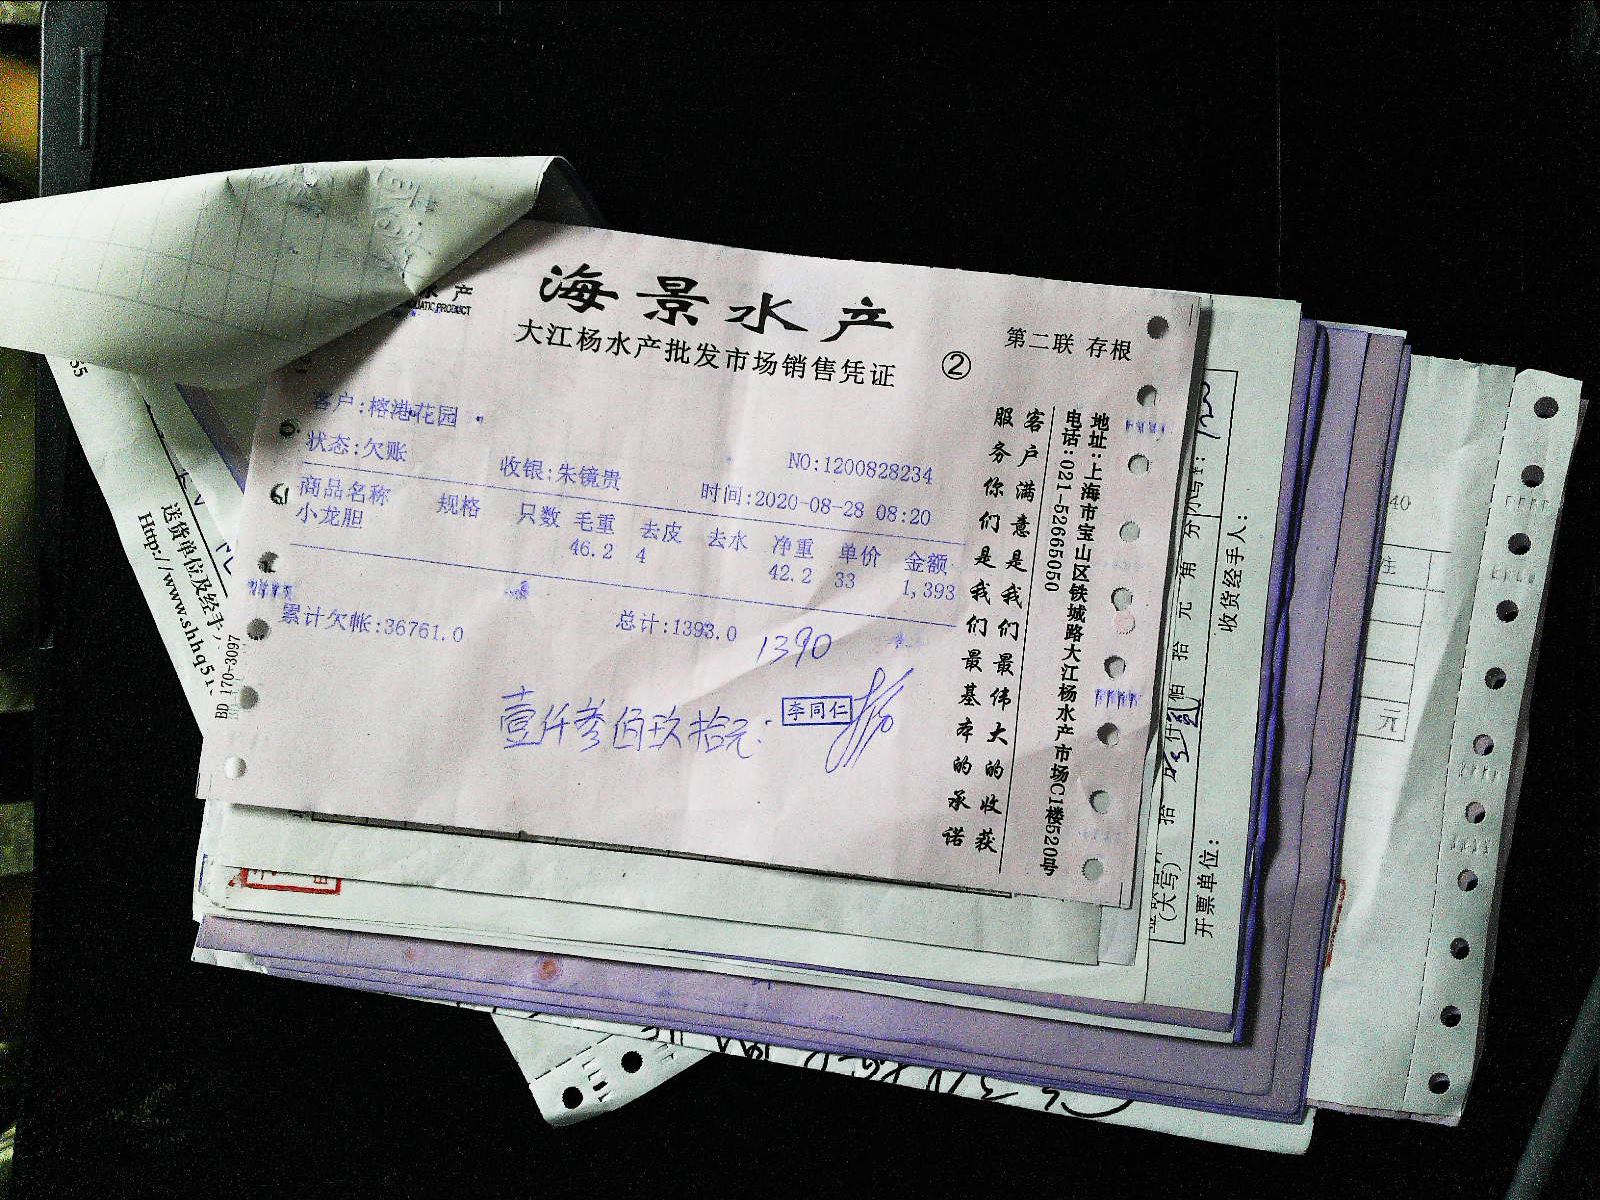 水产
AQUATIC PRODUCT
海景水产
大江杨水产批发市场销售凭证
②
第二联 存根
客户:榕港花园
状态:欠账
收银:朱镜贵
NO:1200828234
时间:2020-08-28 08:20
商品名称 规格 只数 毛重 去皮 去水 净重 单价 金额
小龙胆 46.2 4 42.2 33 1,393
累计欠帐:36761.0
总计:1393.0
1390
壹仟叁佰玖拾元
李同仁
客户满意是我们最伟大的收获
服务你们是我们最基本的承诺
地址:上海市宝山区铁城路大江杨水产市场C1楼520号
电话:021-52665050
送货单位及经手
Http://www.shhq51
BD 170-3097
35
收货经手人:
开票单位:
(大写) 拾 仟 佰 拾 元 角 分
40
注
元